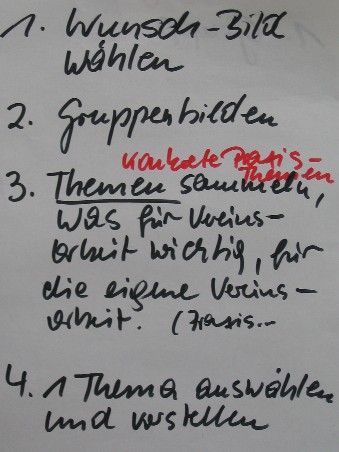 1. Wunsch-Bild
wählen
2. Gruppenbilden
konkrete Praxis-
Themen
3. Themen sammeln,
was für Vereins-
arbeit wichtig, für
die eigene Vereins-
arbeit. (Praxis...
4. 1 Thema auswählen
und vorstellen